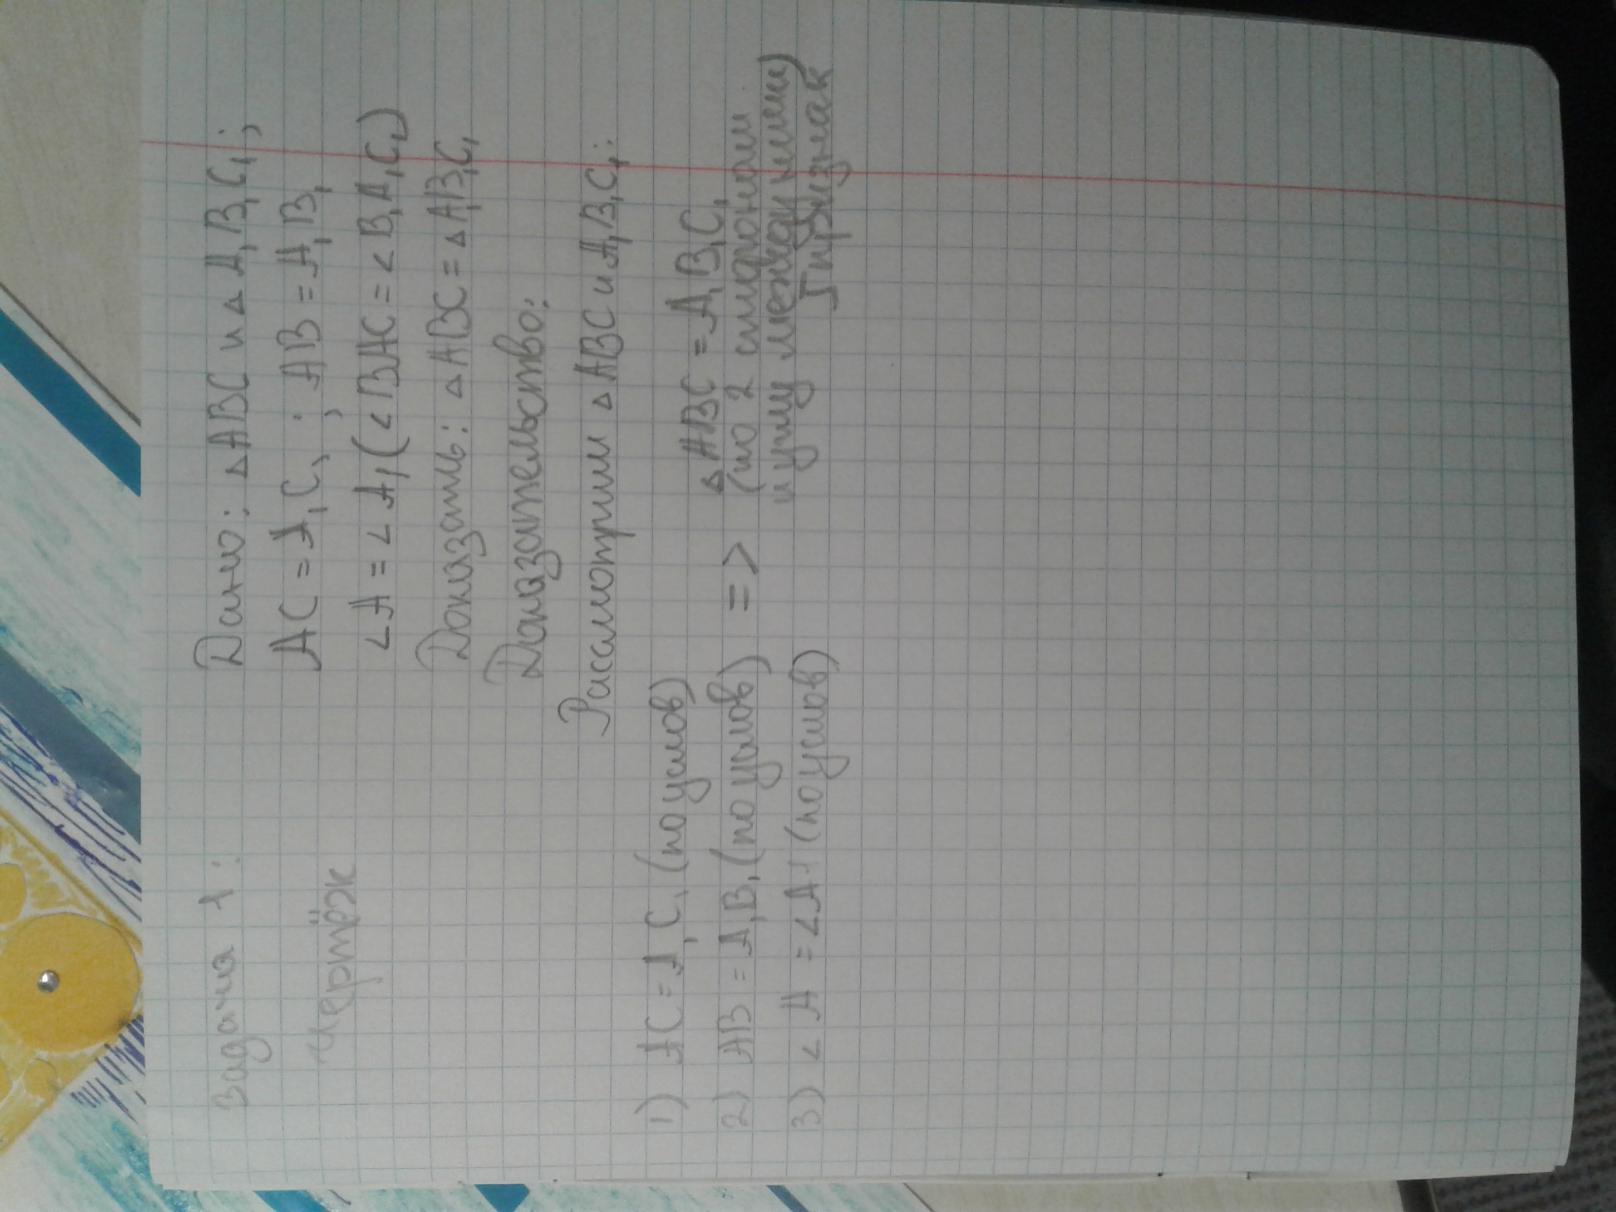 Задача 1:
чертёж
Дано: △ABC и △A₁B₁C₁;
AC = A₁C₁; AB = A₁B₁
∠A = ∠A₁(∠BAC = ∠B₁A₁C₁)
Доказать: △ABC = △A₁B₁C₁
Доказательство:
Рассмотрим △ABC и A₁B₁C₁:
1) AC = A₁C₁ (по услов)
2) AB = A₁B₁ (по услов) =>
3) ∠A = ∠A₁ (по услов)
△ABC = A₁B₁C₁
(по 2 сторонам
и углу между ними)
I признак